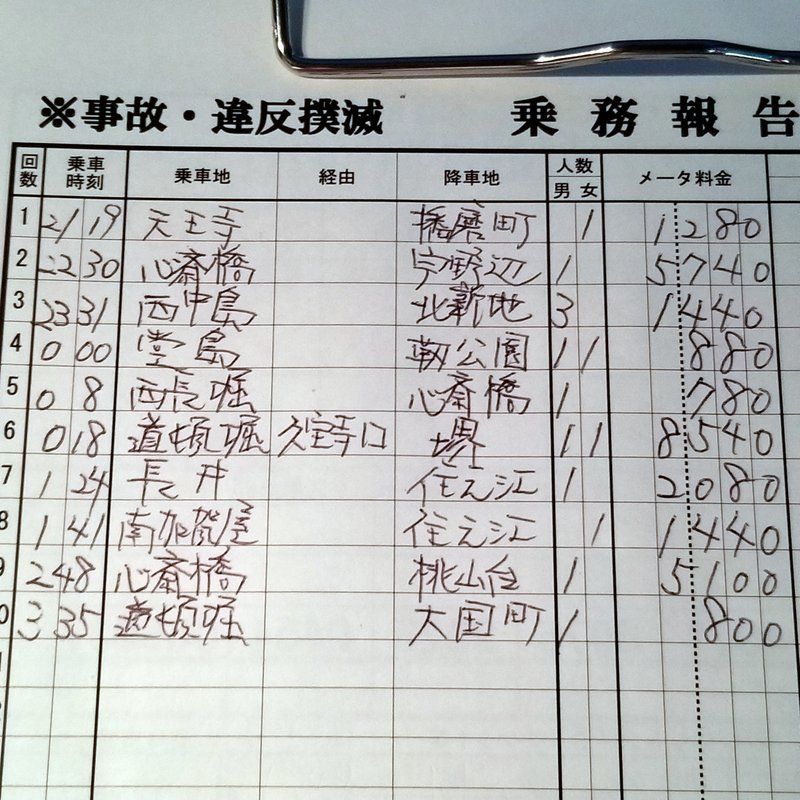 ※事故・違反撲滅 乗務報告
回数 乗車時刻 乗車地 経由 降車地 人数 男 女 メータ料金
1 21 19 天王寺 播磨町 1 1280
2 22 30 心斎橋 宇野辺 1 5740
3 23 31 西中島 北新地 3 1440
4 0 00 堂島 靭公園 1 1 880
5 0 8 西長堀 心斎橋 1 780
6 0 18 道頓堀 久宝寺口 堺 1 1 8540
7 1 24 長井 住之江 1 2080
8 1 41 南加賀屋 住之江 1 1440
9 2 48 心斎橋 桃山台 1 5100
0 3 35 道頓堀 大国町 1 800
1
2